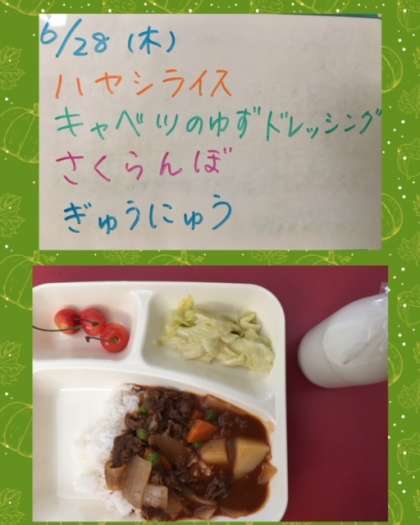 6/28(木)
ハヤシライス
キャベツのゆずドレッシング
さくらんぼ
ぎゅうにゅう